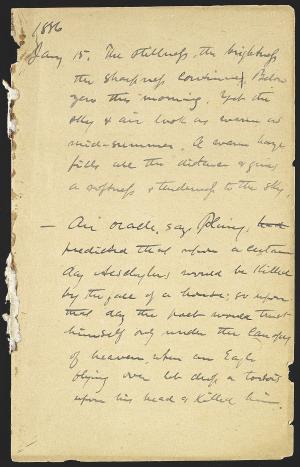 1886
Jany 15. The stillness, the brightness
the sharpness continues. Below
zero this morning. Yet the
sky & air look as warm as
mid-summer. A warm haze
fills all the distance & gives
a softness & tenderness to the sky.
— An oracle, says Pliny, had
predicted that upon a certain
day Aeschylus would be killed
by the fall of a house; so upon
that day the poet would trust
himself only under the canopy
of heaven, when an Eagle
flying over let drop a tortoise
upon his head & killed him.